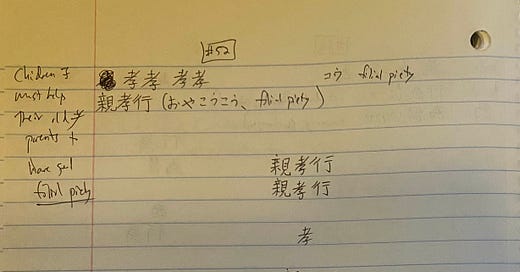 #52
Children 子 孝孝 孝孝 コウ filial piety
must help 親孝行 (おやこうこう、filial piety)
their old 耂
parents to
have 親孝行
filial piety 親孝行
孝